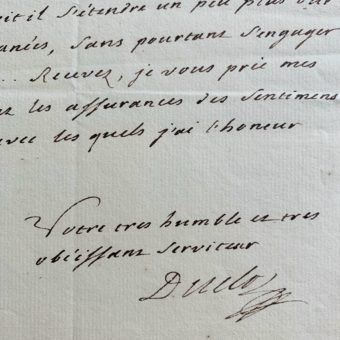 il s'étendre un peu plus sur
sans pourtant s'engager
... Recevez, je vous prie mes
les assurances des sentimens
avec les quels j'ai l'honneur
Votre tres humble et tres
obéissant serviteur
Duclos